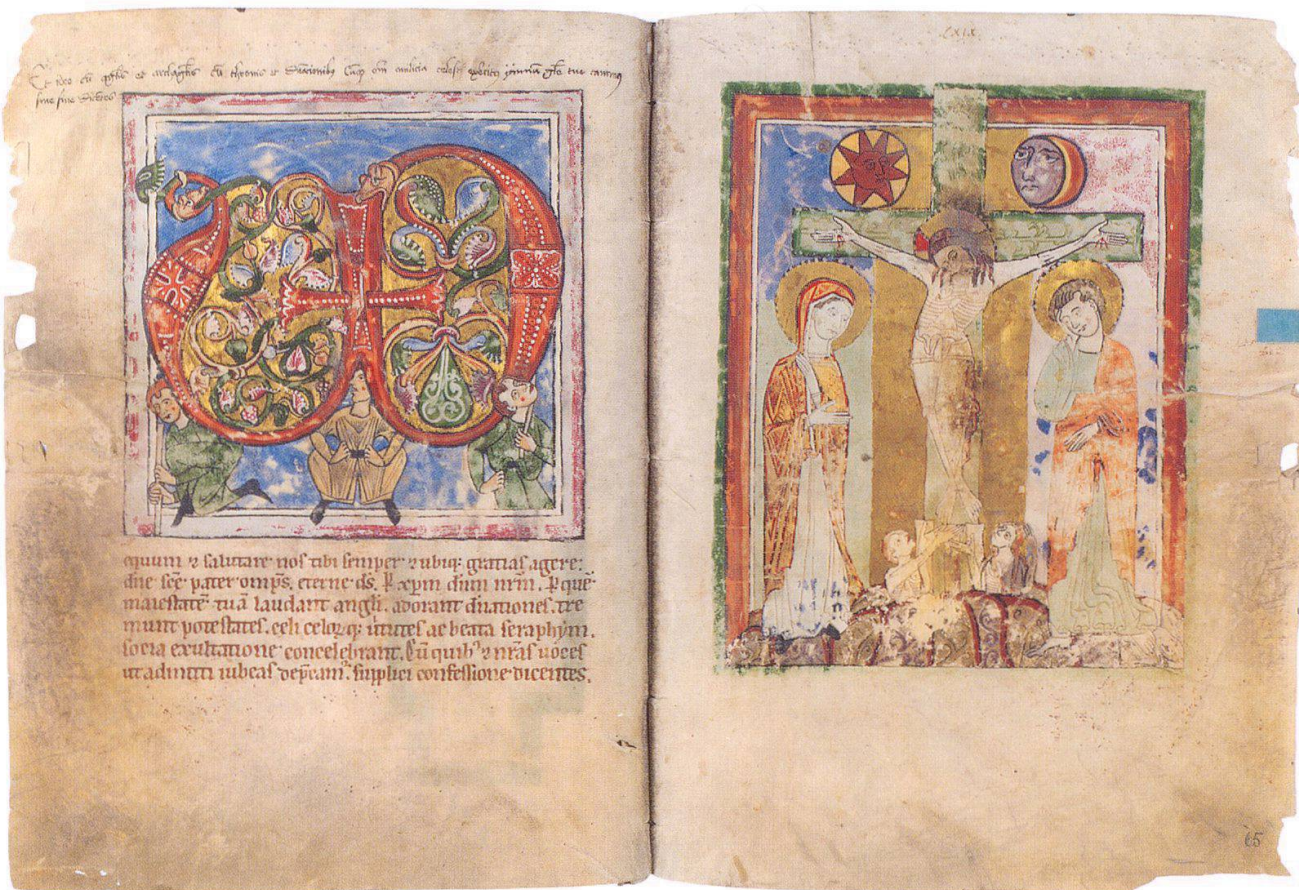 Et ideo cū angelis et archāglis cū thronis et dn̄acionibus cūq; om̄i milicia celestis exercitus ymnū gl̄e tue canimus
sine fine dicētes
LXIX
equum ⁊ salutare nos tibi semper ⁊ ubiq; gratias agere:
dn̄e sc̄e pater om̄ps, eterne ds̄. P xp̄m dn̄m nr̄m. P quē
maiestatē tuā laudant angl̄i. adorant dn̄ationes. tre
munt potestates. celi celorq; uirtutes ac beata seraphym.
socia exultatione concelebrant. Cū quib; ⁊ nr̄as uoces
ut admitti iubeas dep̄cam̄. supplici confessione dicentes.
65